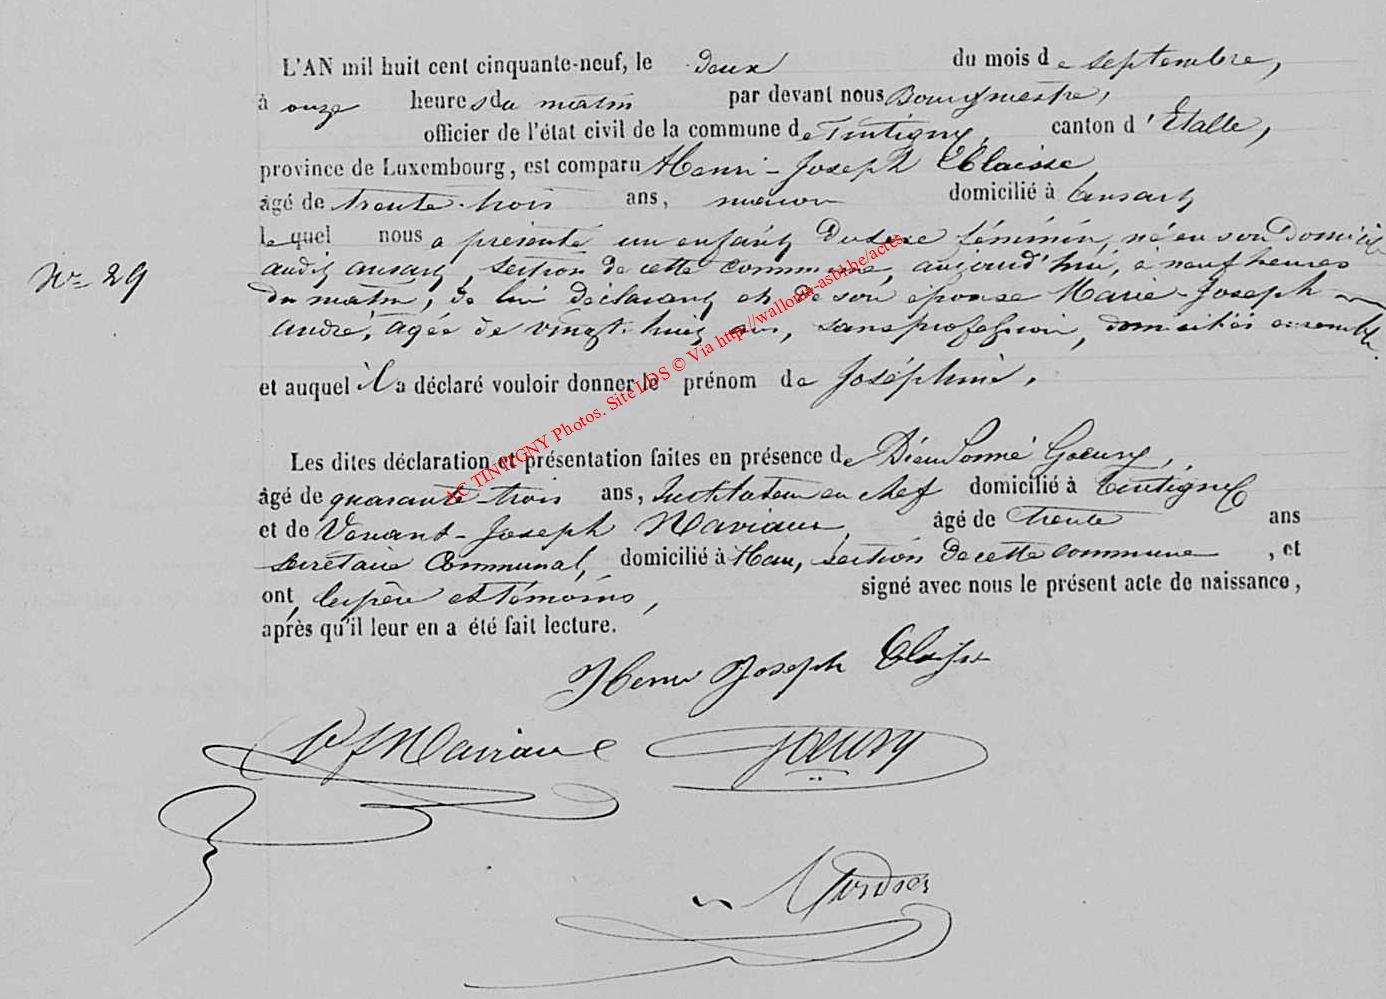 L'AN mil huit cent cinquante-neuf, le deux du mois de septembre,
à onze heures du matin par devant nous Bourgmestre,
officier de l'état civil de la commune de Tintigny, canton d'Etalle,
province de Luxembourg, est comparu Henri-Joseph Claisse
âgé de trente-trois ans, maçon domicilié à ansart
lequel nous a présenté un enfant du sexe féminin, né en son domicile
N° 29
audit ansart, section de cette commune, aujourd'hui, à neuf heures
du matin, de lui déclarant et de son épouse Marie-Joseph
andré, agée de vingt-huit ans, sans profession, domiciliés ensemble.
et auquel il a déclaré vouloir donner le prénom de Joséphine.
Les dites déclaration et présentation faites en présence de Dieudonné Goeury,
âgé de quarante-trois ans, Instituteur en chef domicilié à Tintigny
et de Venant-Joseph Naviaux, âgé de trente ans
secrétaire Communal, domicilié à Han, section de cette commune, et
ont, le père et témoins, signé avec nous le présent acte de naissance,
après qu'il leur en a été fait lecture.
Henri Joseph Claisse
VJ Naviaux Goeury
AC TINTIGNY Photos. Site LDS © Via http://wallonia-asbl.be/actes.